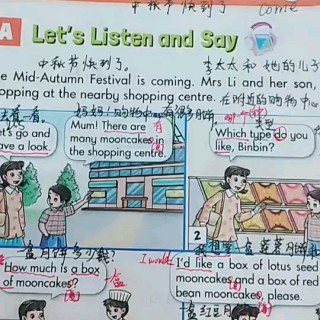 中秋节快到了 come
A Let's Listen and Say
中秋节快到了。 李太太和她的儿子
e Mid-Autumn Festival is coming. Mrs Li and her son,
opping at the nearby shopping centre. 在附近的购物中心
去看一看。
妈妈！购物中心有很多月饼
et's go and
ave a look.
Mum! There are 有
many mooncakes in
the shopping centre.
类型
Which type do you
like, Binbin?
2
一盒月饼多少钱？
How much is a box 一盒
of mooncakes?
I would
I'd like a box of lotus seed
mooncakes and a box of red
bean mooncakes, please.